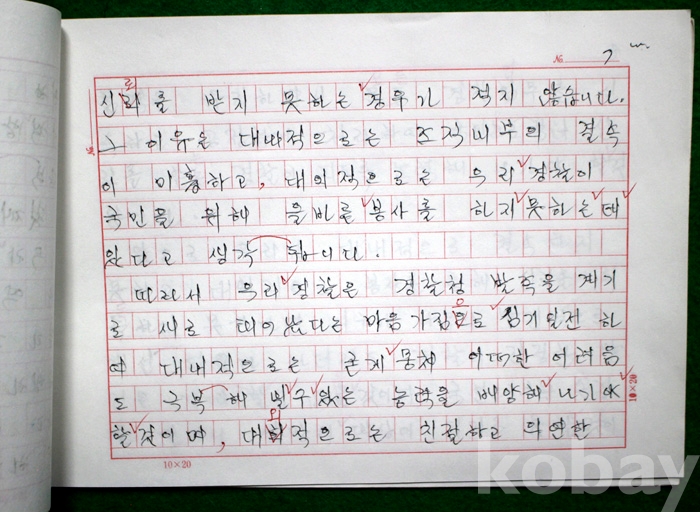 № 7
신뢰를 받지 못하는 경우가 적지 않습니다.
그 이유는 대내적으로는 조직내부의 결속
이 미흡하고, 대외적으로는 우리 경찰이
국민을 위해 올바른 봉사를 하지 못하는데
있다고 생각 됩니다.
따라서 우리 경찰은 경찰청 발족을 계기
로 새로 태어 났다는 마음가짐으로 심기일전 하
여 대내적으로는 굳게 뭉쳐 어떠한 어려움
도 극복해 낼 수 있는 능력을 배양해 나가야
할 것이며, 대외적으로는 친절하고 의연한
10×20
10×20
kobay